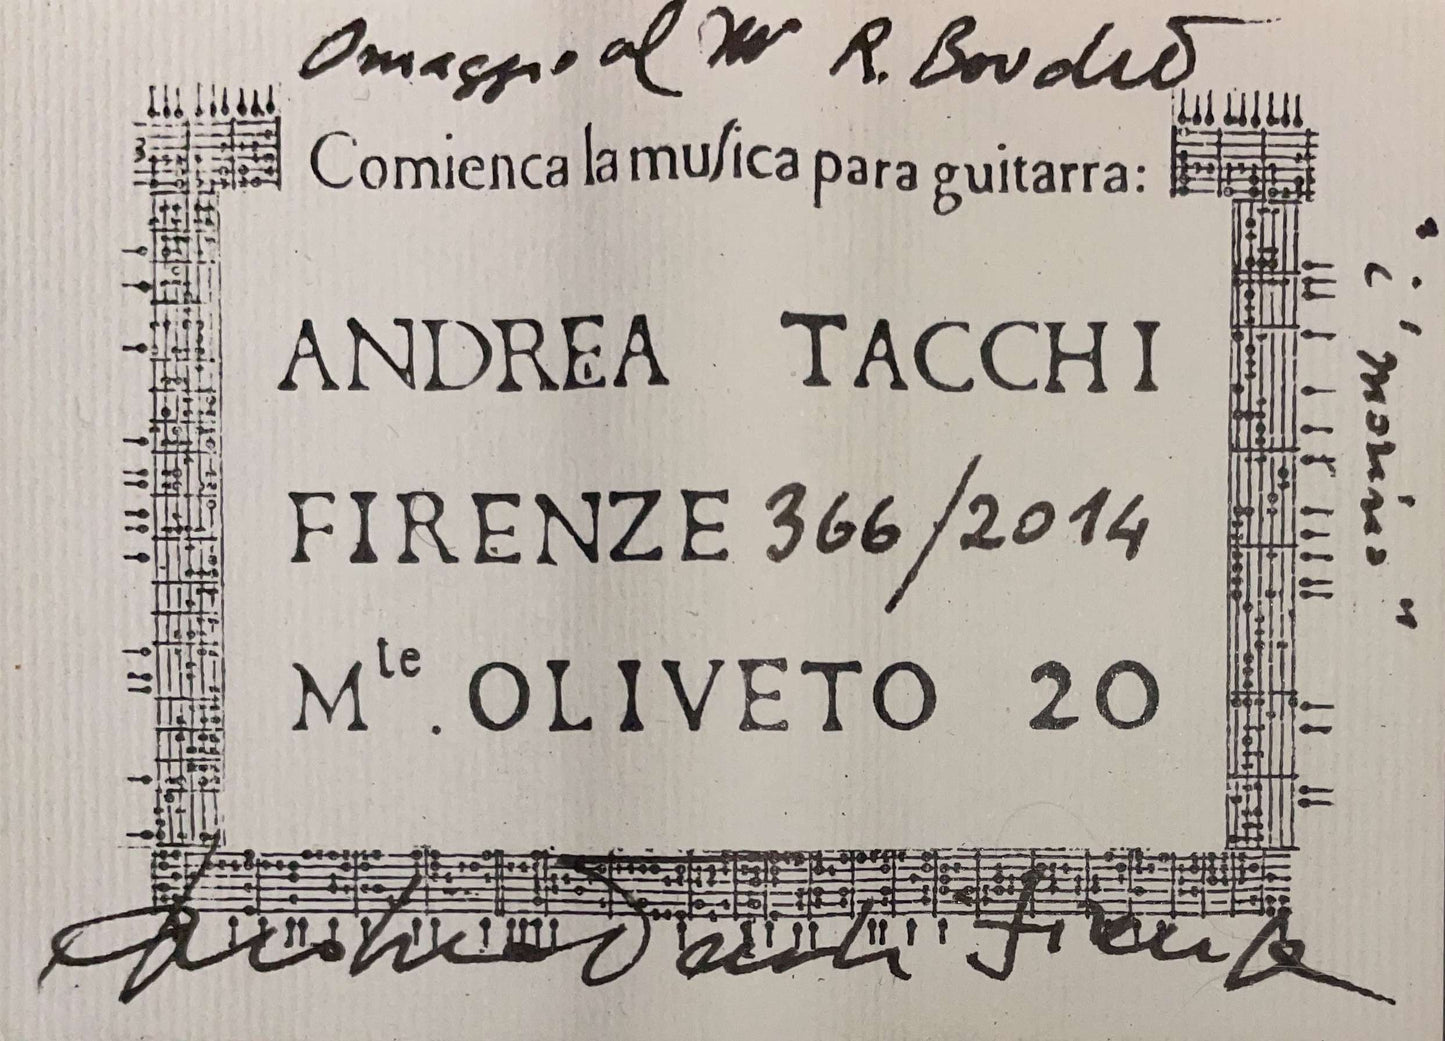 Omaggio al M° R. Bouchet
Comienca la muſica para guitarra:
ANDREA TACCHI
FIRENZE 366/2014
Mte. OLIVETO 20
Andrea Tacchi Firenze